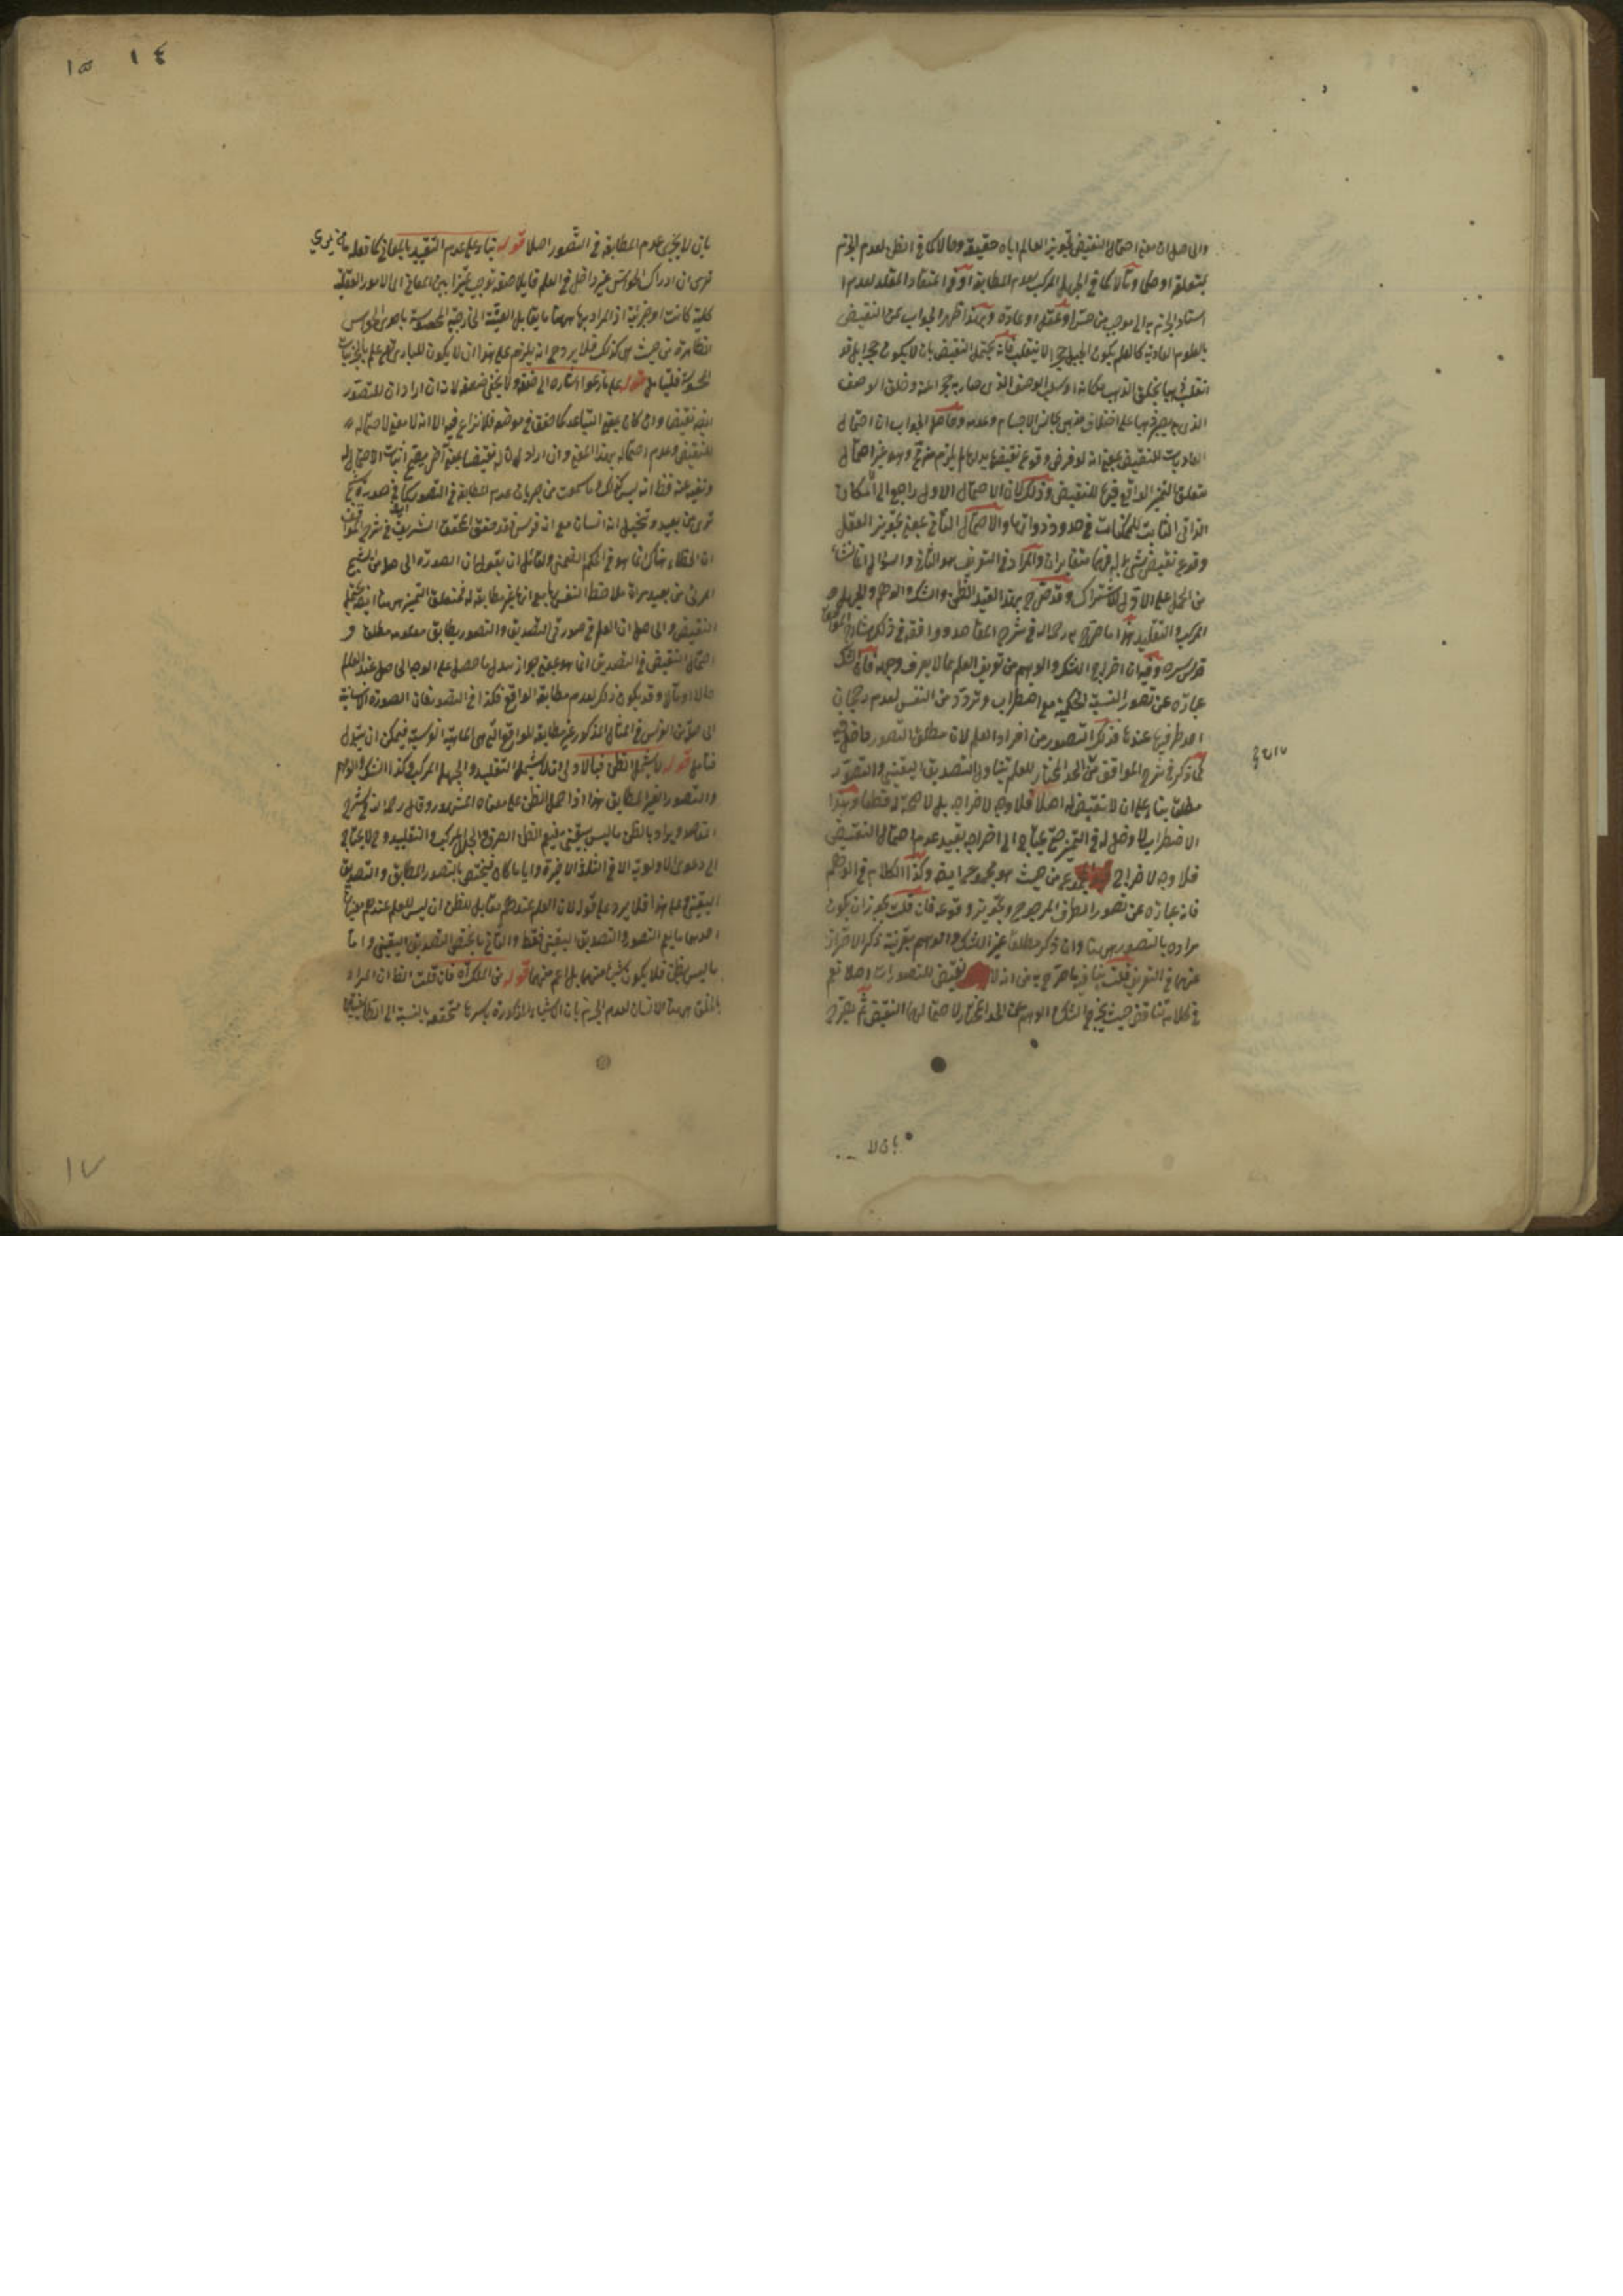 والحاصل ان معنى احتمال النقيض تجويز العالم اياه حقيقة وحالا كما في الظن لعدم الجزم
بمتعلقه او حكما ومآلا كما في الجهل المركب لعدم المطابقة او في اعتقاد المقلد لعدم
استناد الجزم به الى موجب من حس او عقل او عادة وبهذا ظهر الجواب عن النقيض
بالعلوم العادية كالعلم بكون الجبل حجرا لا ينقلب فانه يحتمل النقيض بان لا يكون حجرا بل قد
انقلب ذهبا بخلق الذهب مكانه او سلب الوصف الذي صار به حجرا عنه وخلق الوصف
الذي به يصير ذهبا على اختلاف مذهبي تجانس الاجسام وعدمه وحاصل الجواب ان احتمال
العاديات للنقيض بمعنى انه لو فرض وقوع نقيضها بدلها لم يلزم منه مح وهو غير احتمال
متعلق التميز الواقع فيه للنقيض وذلك لان الاحتمال الاول راجع الى الامكان
الذاتي الثابت للممكنات في حدود ذواتها والاحتمال الثاني بمعنى تجويز العقل
وقوع نقيض شيء بدله فهما متغايران والمراد في التعريف هو الثاني والسؤال انما نشأ
من الحمل على الاول للاشتراك وقد صرح بهذا القيد الظن والشك والوهم والجهل
المركب والتقليد هذا ما صرح به رحمه الله في شرح المقاصد ووافقه في ذلك شارح المواقف
قدس سره وفيه ان اخراج الشك والوهم من تعريف العلم مما لا يعرف وجهه فان الشك
عبارة عن تصور النسبة الحكمية مع اضطراب وتردد من النفس لعدم رجحان
احد طرفيها عندها فذلك التصور من افراد العلم لان مطلق التصور داخل فيه
كما ذكر في شرح المواقف من ان الحد المختار للعلم يتناول التصديق اليقيني والتصور
مطلقا بناء على ان لا نقيض له اصلا فلا وجه لاخراجه بل لا صحة له قطعا وهذا
الاضطراب لا دخل له في التميز حتى يحتاج الى اخراجه بقيد عدم احتمال النقيض
فلا وجه لاخراج المجموع من حيث هو مجموع ايضا وكذا الكلام في الوهم
فانه عبارة عن تصور الطرف المرجوح وتجويز وقوعه فان قلت يجوز ان يكون
مراده بالتصور ههنا وان ذكر مطلقا غير الشك والوهم بقرينة ذكر الاحتراز
عنهما في التعريف قلت ينافيه ما صرح به من انه لا نقيض للتصورات اصلا نعم
في كلامه تناقض حيث يخرج الشك والوهم عن الحد المختار لاحتمالهما النقيض ثم يصرح
بان لا يجري عدم المطابقة في التصور اصلا قوله بناء على عدم التقييد بالمعاني كما تعله
ترى ان ادراك الحواس غير داخل في العلم قائلا صفة توجب تميزا بين المعاني اي الامور العقلية
كلية كانت او جزئية اذ المراد بها ههنا ما يقابل العينية الخارجية المحسوسة باحدى الحواس
الظاهرة من حيث هي كذلك فلا يرد ح انه يلزم على هذا ان لا يكون للباري تعالى علم بالجزئيات
المحسوسة فليتامل قوله على ما زعموا اشارة الى ضعفه ولا يخفى ضعفه لانه ان اراد ان للتصور
ايضا نقيضا وان كان بمعنى التباعد كما حقق في موضعه فلا نزاع فيه الا انه لا معنى لاحتماله
للنقيض وعدم احتماله بهذا المعنى وان اراد ان له نقيضا بمعنى آخر يصح اثبات الاحتمال له
ونفيه عنه فظ انه ليس كذلك وما سمعت من جريان عدم المطابقة في التصور كما في صورة شبح
ترى من بعيد وتخيل انه انسان مع انه فرس فقد حقق المحقق الشريف في شرح المواقف
ان الخطاء هناك انما هو في الحكم الضمني ولقائل ان يقول ان الصورة الحاصلة من الشبح
المرئي من بعيد مرآة ملاحظة النفس لها مع انها غير مطابقة له فمتعلق التميز هنا ايضا يحتمل
النقيض والحاصل ان العلم في صورتي التصديق والتصور يطابق معلومه مطلقا و
احتمال النقيض في التصديق انما هو بمعنى جواز بدل ما حصل على الوجه الحاصل عند العلم
حالا او مآلا وقد يكون ذلك لعدم مطابقة الواقع فكذا في التصور فان الصورة الانسانية
الحاصلة من الفرس في المثال المذكور غير مطابقة للواقع التي هي الماهية الفرسية فيمكن ان يتبدل
فتامل قوله لا يشمل الظن فبالاولى ان لا يشمل التقليد والجهل المركب وكذا الشك والوهم
والتصور الغير المطابق هذا اذا حمل الظن على معناه المشهور وقال رحمه الله في شرح
المقاصد ويراد بالظن ما ليس بيقيني فيعم الظن الصرف والجهل المركب والتقليد وح لا يحتاج
الى دعوى الاولوية الا في الثلثة الاخيرة وايا ما كان فيختص بالتصور المطابق والتصديق
اليقيني وعلى هذا فلا يرد على قوله لان العلم عندهم مقابل للظن ان ليس للعلم عندهم معنيان
احدهما ما يعم التصور والتصديق اليقيني فقط والثاني ما يختص التصديق اليقيني واما
ما ليس بظن فلا يكون شيئا منهما بل اعم منهما قوله من الملك آه فان قلت الظ ان المراد
بالخلق ههنا الانسان لعدم الجزم بان الاشياء المذكورة باسرها متحققة بالنسبة الى الطائفتين